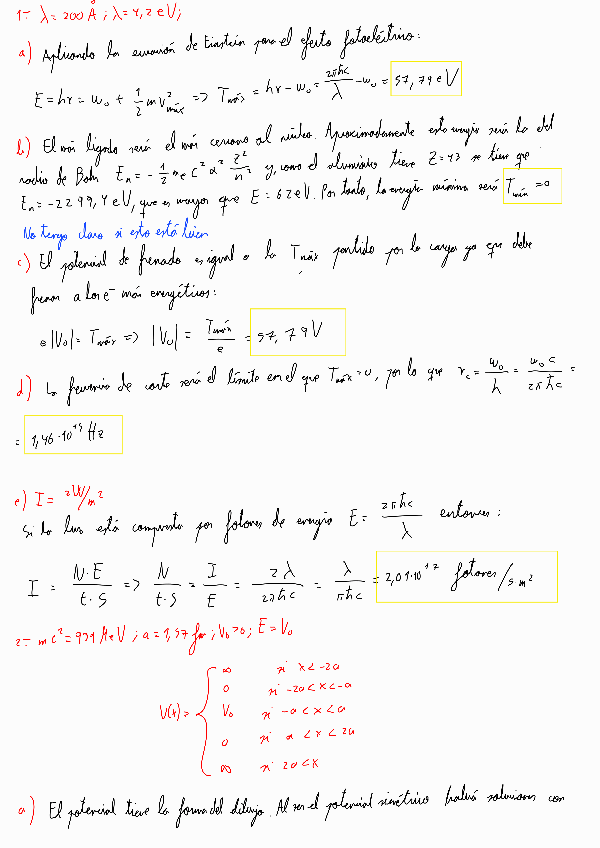 1- λ = 200 Å ; λ = 4,2 eV;
a) Aplicando la ecuación de Einstein para el efecto fotoeléctrico:
E = hν = w₀ + 1/2 m v²máx => Tmáx = hν - w₀ = 2πħc/λ - w₀ = 57,79 eV
b) El más ligado será el más cercano al núcleo. Aproximadamente esta energía será la del
radio de Bohr Eₙ = - 1/2 mₑ c² α² Z²/n² y, como el aluminio tiene Z = 13 se tiene que
Eₙ = -2299,4 eV, que es mayor que E = 62 eV. Por tanto, la energía mínima será Tmín = 0
No tengo claro si esto está bien
c) El potencial de frenado es igual a la Tmáx partido por la carga ya que debe
frenar a los e⁻ más energéticos:
e|V₀| = Tmáx => |V₀| = Tmáx/e = 57,79 V
d) La frecuencia de corte será el límite en el que Tmáx = 0, por lo que ν꜀ = w₀/h = w₀c/2πħc =
= 1,46·10¹⁵ Hz
e) I = 2W/m²
Si la luz está compuesta por fotones de energía E = 2πħc/λ entonces:
I = N·E/t·S => N/t·S = I/E = 2λ/2πħc = λ/πħc = 2,01·10¹⁷ fotones/s·m²
2- mc² = 931 MeV ; a = 1,57 fm ; V₀>0 ; E = V₀
∞ si x < -2a
0 si -2a < x < -a
V(x) = V₀ si -a < x < a
0 si a < x < 2a
∞ si 2a < x
a) El potencial tiene la forma del dibujo. Al ser el potencial simétrico habrá soluciones con